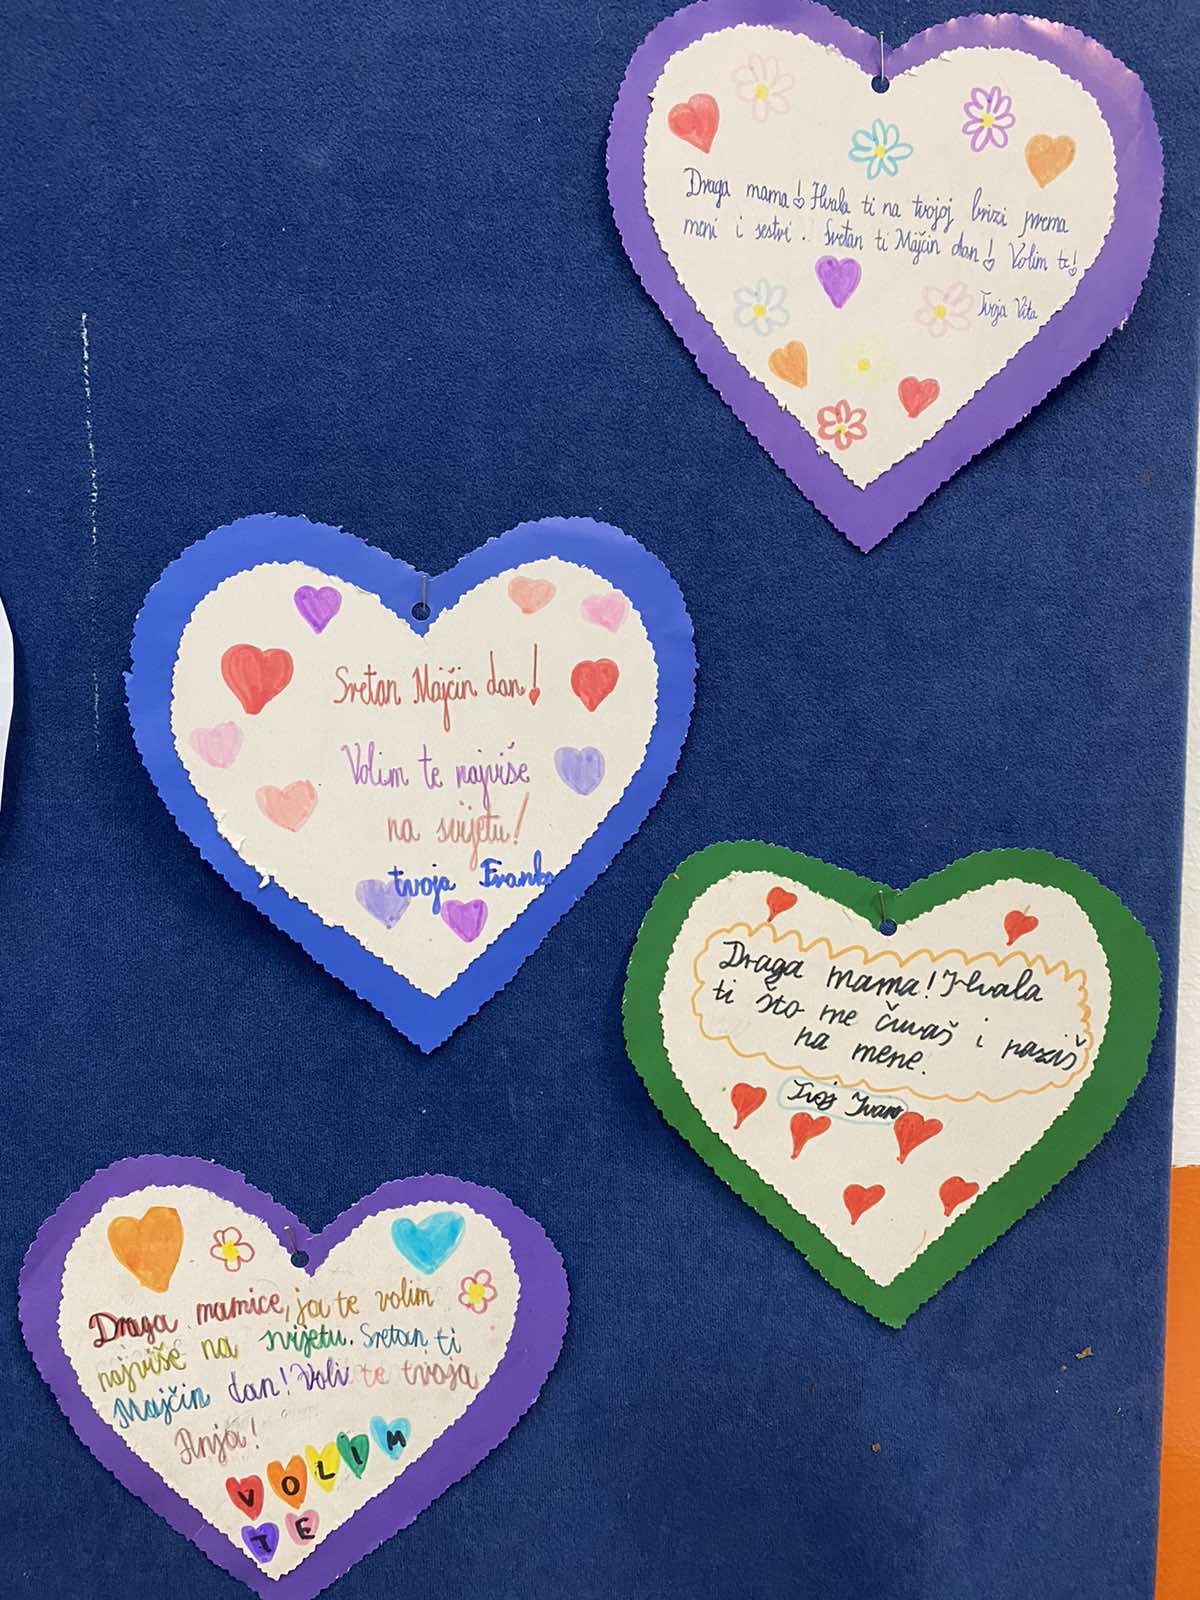 Draga mama! Hvala ti na tvojoj brizi prema
meni i sestri. Sretan ti Majčin dan! Volim te!
Tvoja Vita
Sretan Majčin dan!
Volim te najviše
na svijetu!
tvoja Franka
Draga mama! Hvala
ti što me čuvaš i paziš
na mene.
Tvoj Ivano
Draga mamice, ja te volim
najviše na svijetu. Sretan ti
Majčin dan! Voli te tvoja
Anja!
VOLIM
TE